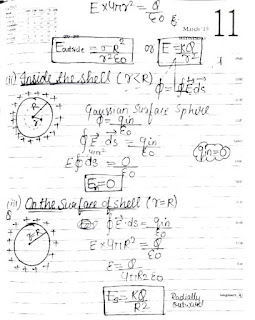 E×4πr² = Q/ε0
March '19
11
Eoutside = σR²/r²ε0 or E = KQ/r²
(ii) Inside the shell (r<R) ϕ = ∮E⃗ds⃗
Gaussian Surface Sphere
∮E⃗ ds⃗ = qin/ε0
qin=0
E∮ds = 0/ε0
E=0
(iii) On the Surface of shell (r=R)
∮E⃗·ds⃗ = qin/ε0
E×4πR² = Q/ε0
E = Q/4πR²ε0
Es = KQ/R² Radially outward